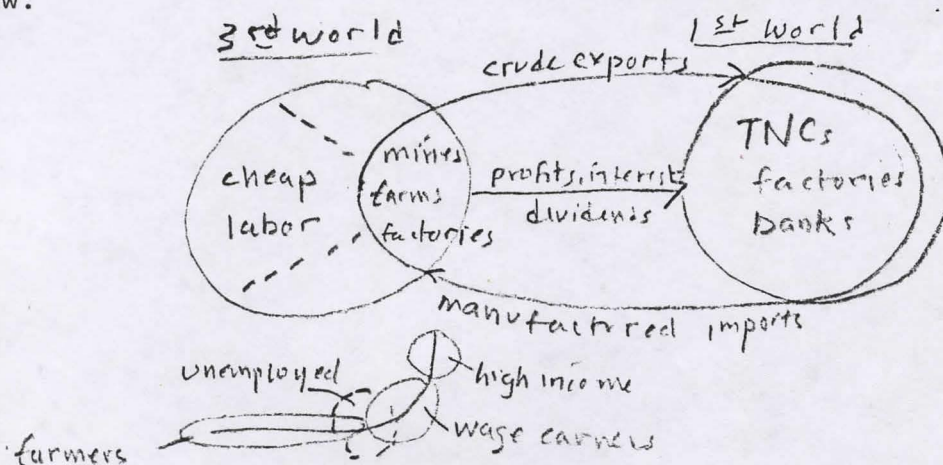 w.
3rd world
1st world
crude exports
cheap
labor
mines
farms
factories
profits, interest
dividends
TNCs
factories
banks
manufactured imports
unemployed
high income
wage earners
farmers